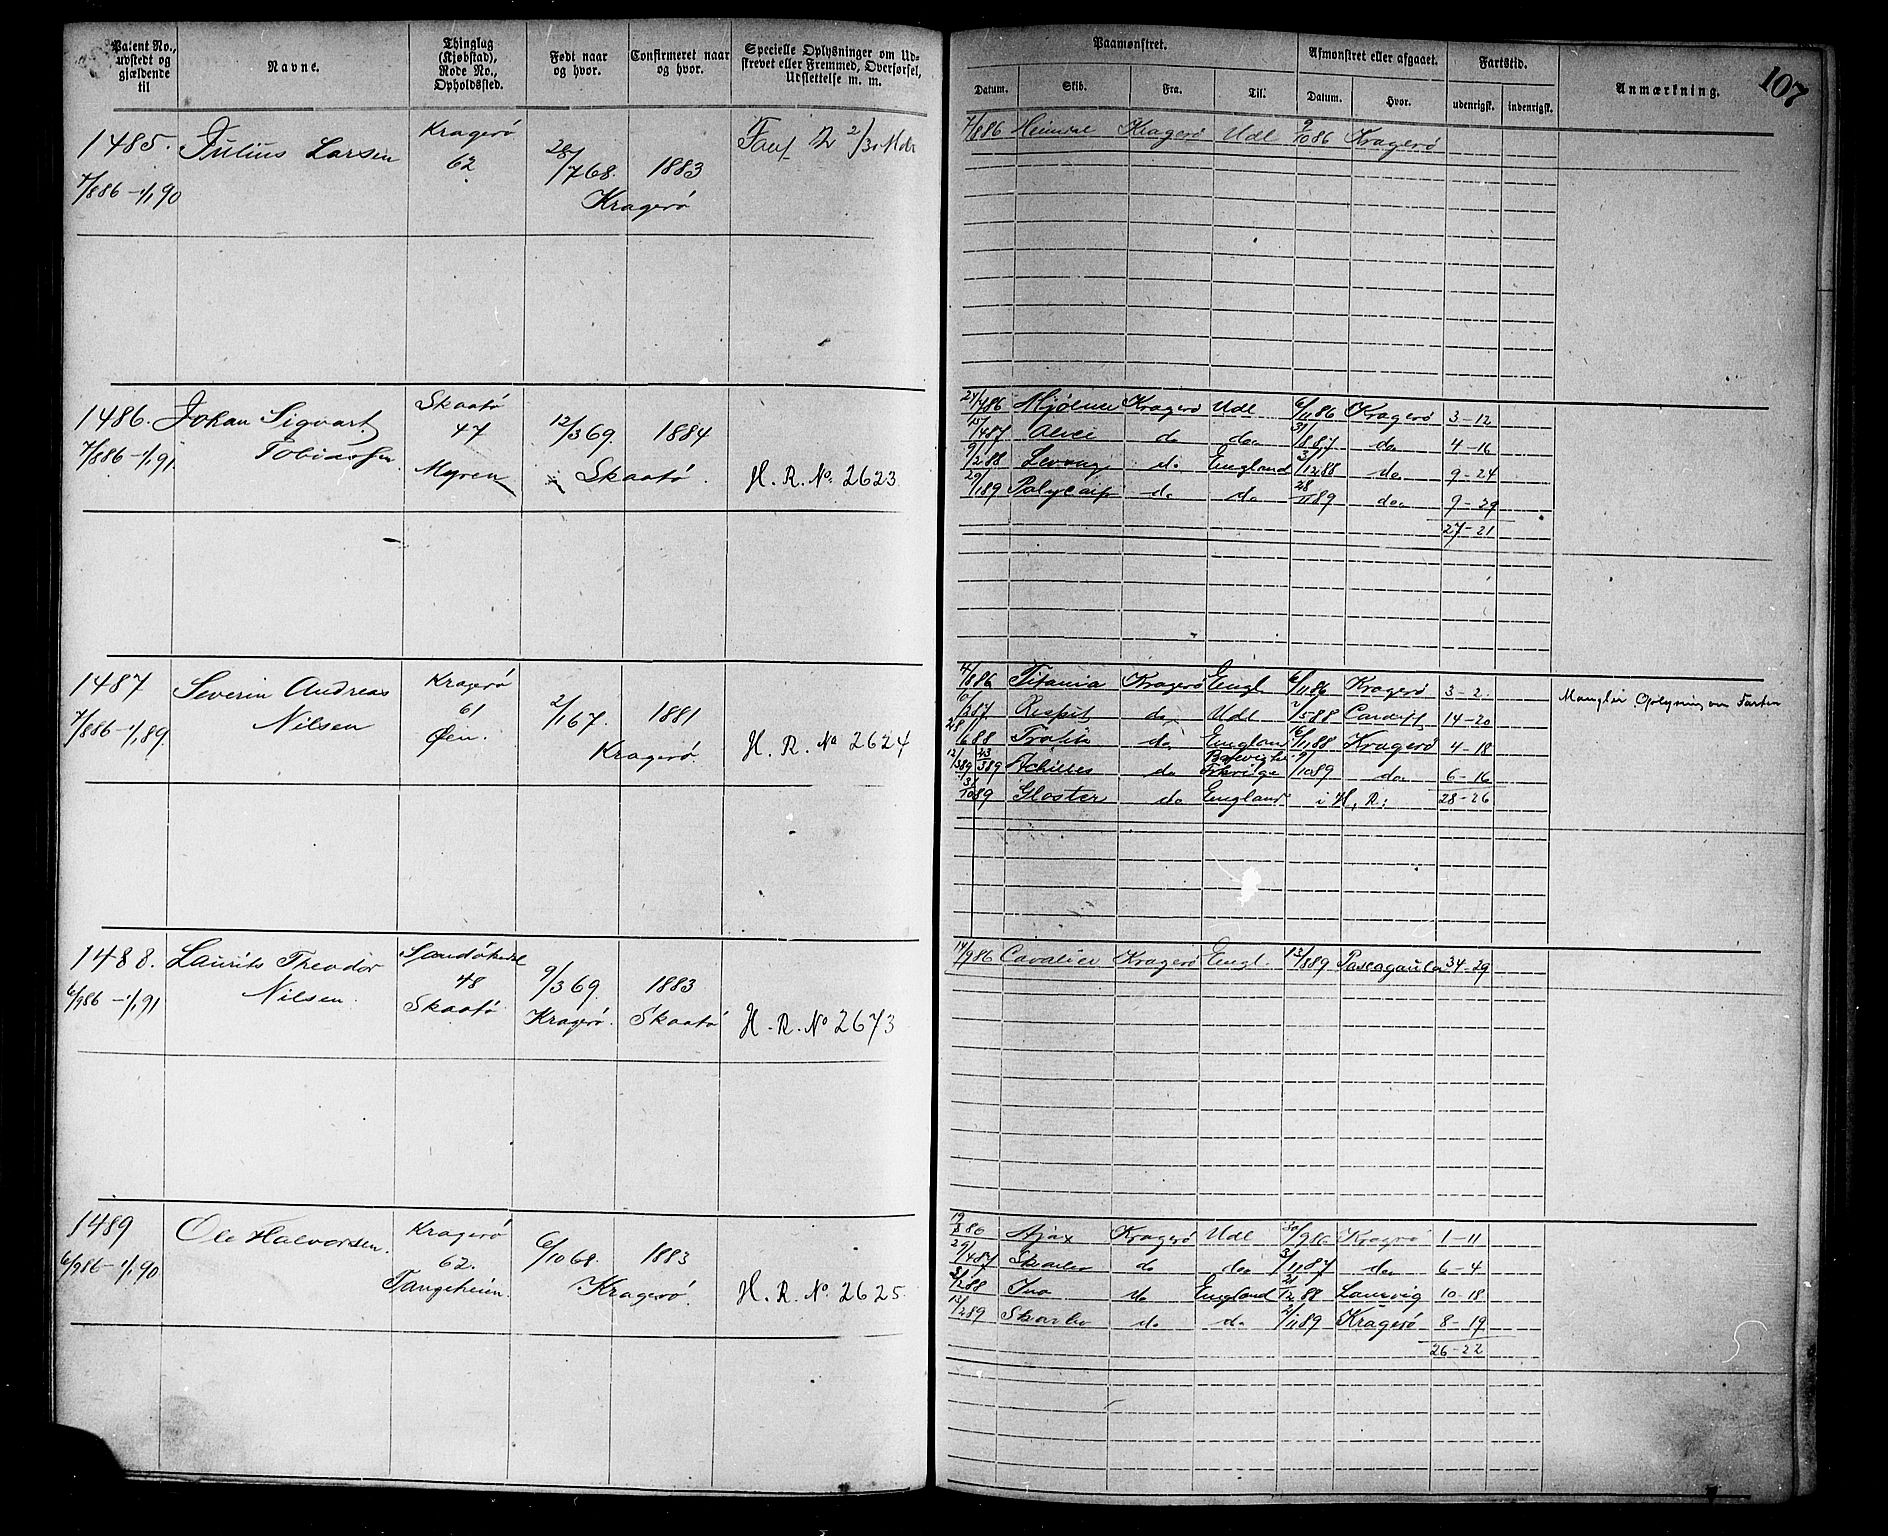 107
Patent No., udstedt og gjældende til
Navne.
Thinglag (Kjøbstad), Rode No., Opholdssted.
Født naar og hvor.
Confirmeret naar og hvor.
Specielle Oplysninger om Udstrevet eller Fremmed, Overførsel, Udslettelse m. m.
Paamønstret.
Afmønstret eller afgaaet.
Fartstid.
Anmærkning.
Datum. Skib. Fra. Til. Datum. Hvor. udenrigsk. indenrigsk.
1485. Julius Larsen Kragerö
62 28/7 68. 1883
7/8 86 – 1/1 90 Kragerö
7/8 86 Heimdal Kragerö Udl 9/10 86 Kragerö
1486. Johan Sigvart Skaatö
Tobiassen 47 12/3 69. 1884
7/8 86 – 1/1 91. Myren Skaatö. H. R. No. 2623.
24/7 86 Mjölner Kragerö Udl 6/11 86 Kragerö 3-12
15/4 87 Alice do do 31/8 87 do 4-16
9/2 88 Levang do England 3/12 88 do 9-24
29/1 89 Polycarp do do 28/11 89 do 9-29
27-21
1487 Severin Andreas Kragerö
Nilsen 61 2/1 67. 1881
7/8 86 – 1/1 89. Øen. Kragerö. H. R. No 2624
4/8 86 Titania Kragerö Engl. 6/11 86 Kragerö 3-2
Mangler Oplysning om Farten
6/3 87 Respit do Udl 2/5 88 Cardiff 14-20
28/6 88 do England 16/11 88 Kragerö 4-18
12/3 89 23/3 89 Achilles do 9/10 89 do 6-16
3/10 89 Gloster do England. i H. R: 28-26
1488. Laurits Theodor Sandökedal
Nilsen. 48 9/3 69. 1883
6/9 86 – 1/1 91 Skaatö Kragerö. Skaatö H. R. No 2673
14/9 86 Cavalier Kragerö Engl. 13/8 89 Pascagaula 34-29
1489 Ole Halvorsen. Kragerö
62. 6/10 68. 1883
6/9 86 – 1/1 90 Tangeheim. Kragerö. H. R. No. 2625.
19/8 86 Ajax Kragerö Udl 30/9 86 Kragerö 1-11
29/4 87 do do 3/11 87 do 6-4
31/1 88 Ino do England 21/12 88 Laurvig 10-18
12/2 89 do do 2/11 89 Kragerö 8-19
26-22